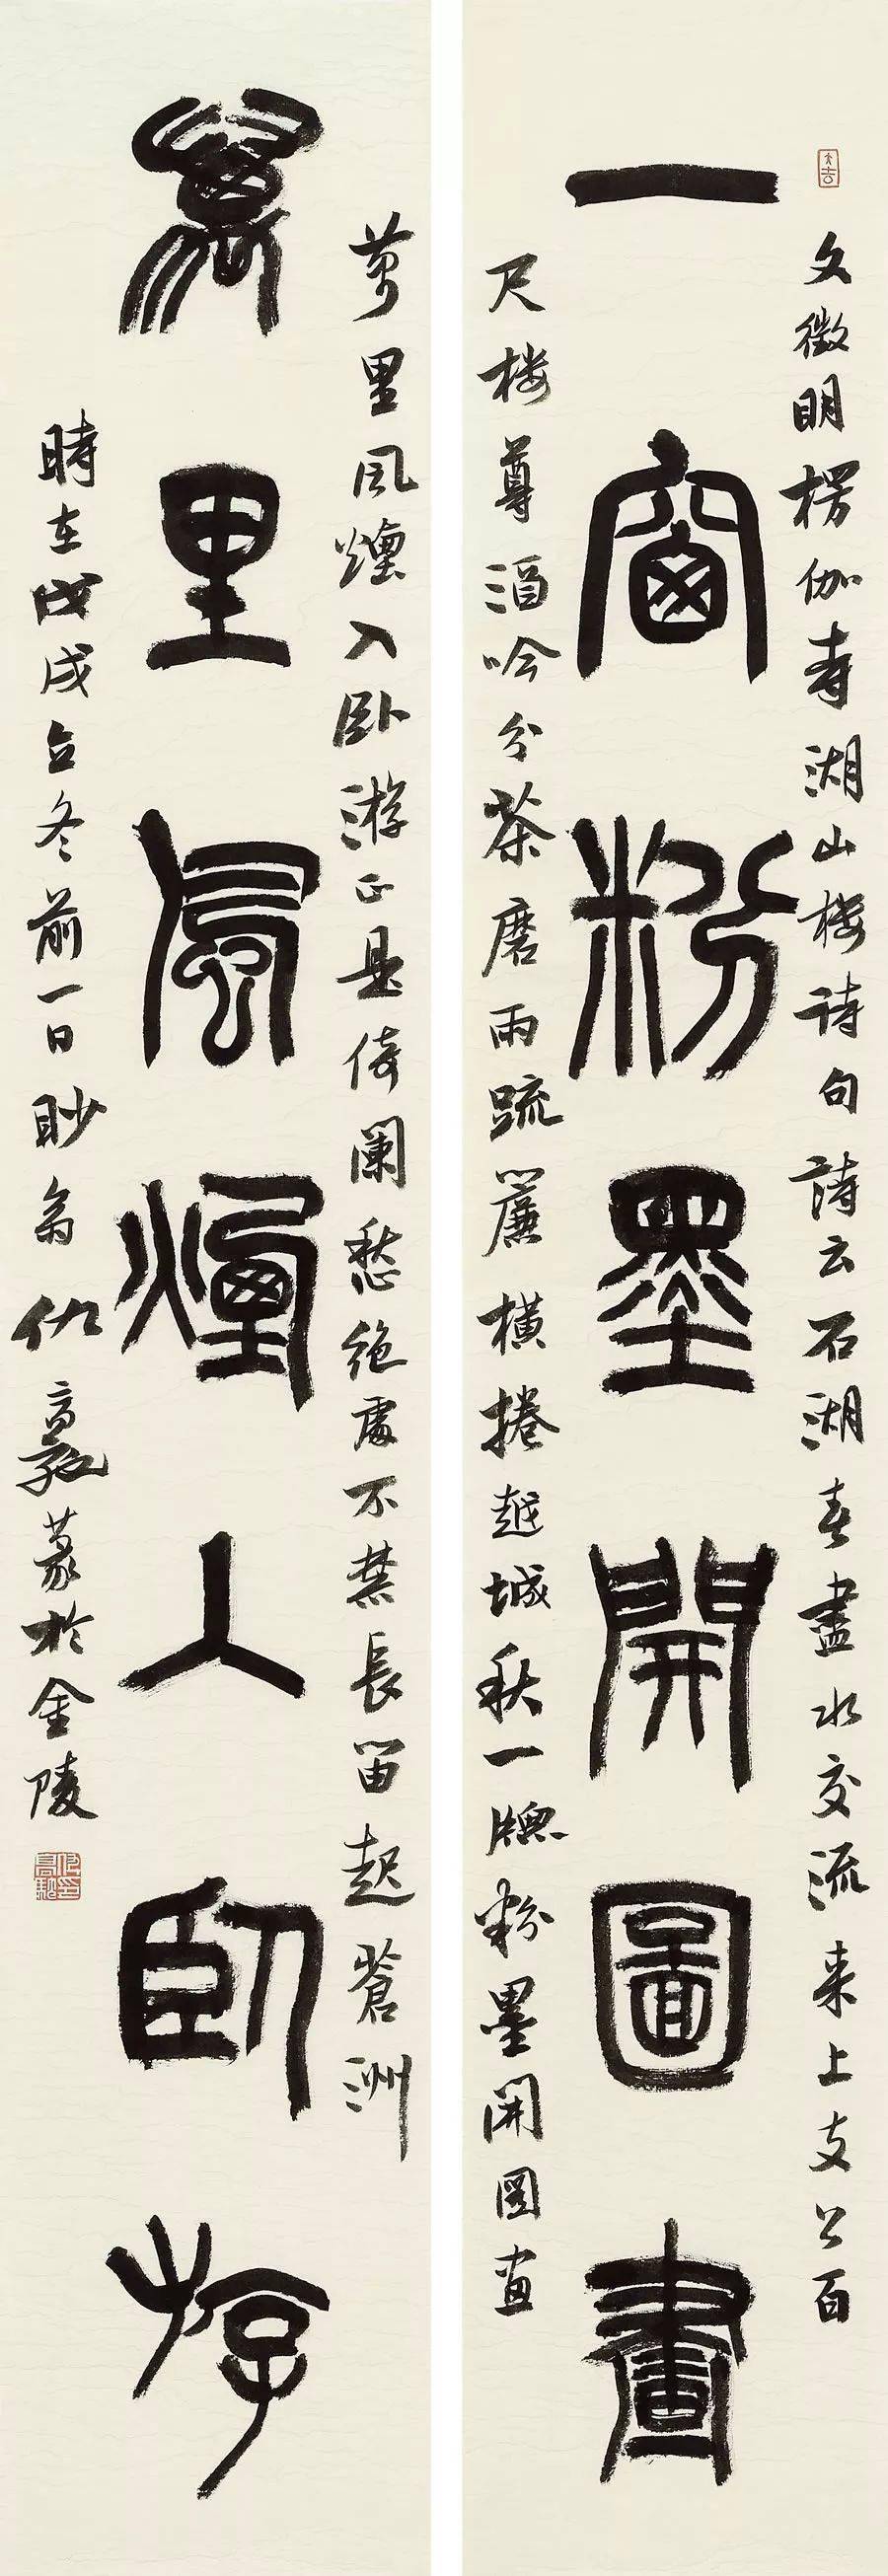 大吉
文徵明楞伽寺湖山楼诗句詩云石湖春盡水交流来上支公百
一窗粉墨開圖畫
尺楼尊酒吟分茶磨雨疏簾橫捲越城秋一牕粉墨開图画
萬里風煙入卧游正是倚闌愁絶處不禁長笛起蒼洲
萬里風煙入卧游
時在戊戌立冬前一日眇翁仇高馳篆於金陵
仇高馳印